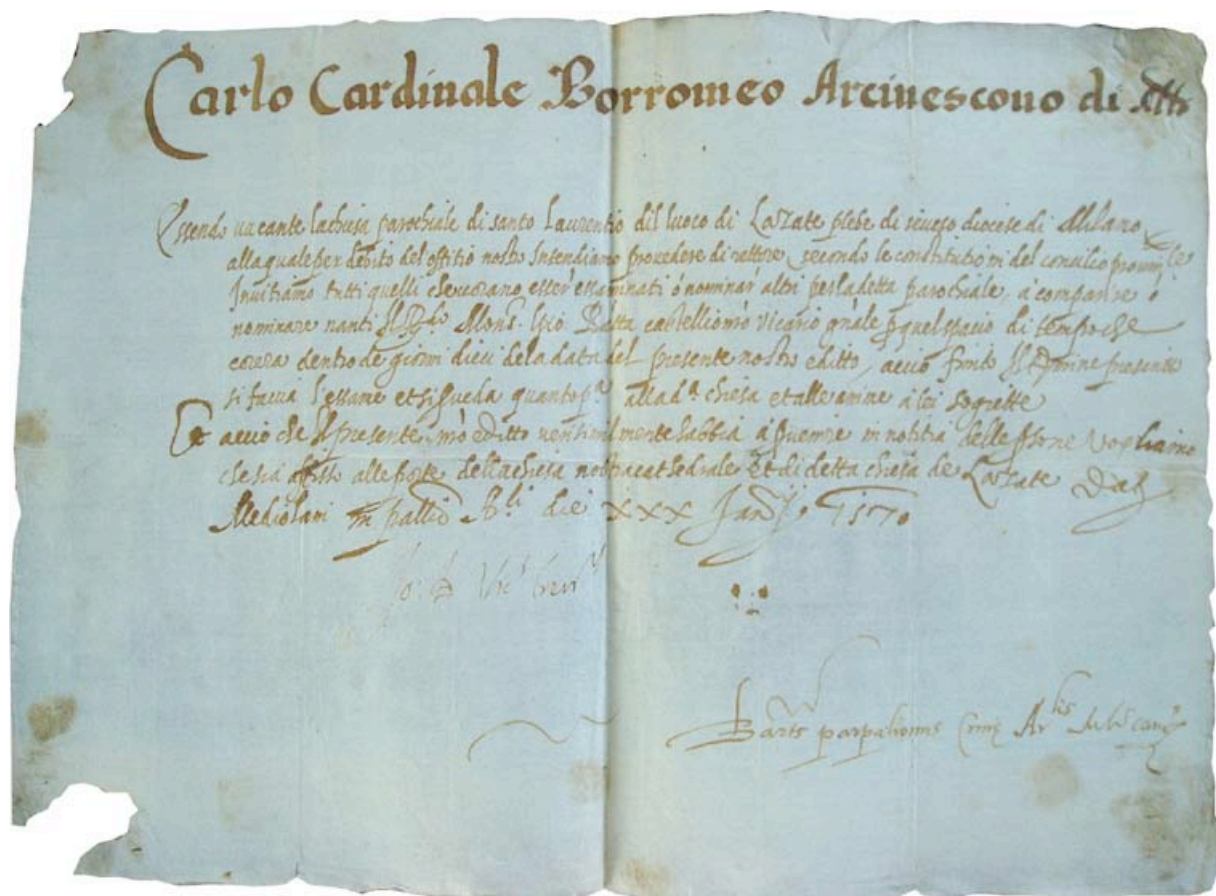 Carlo Cardinale Borromeo Arciuescouo di
Essendo uacante la chiesa parochiale di santo Laurentio dil luoco di Lazzate plebe di seueso diocese di Milano
alla quale per debito del offitio nostro Intendiamo prouedere di rettore, secondo le constitutioni del concilio prouin.le
Inuitiamo tutti quelli che uorano esser essaminati ò nominar altri per la detta parochiale, à comparire ò
nominare nanti Il Mons. Gio. Batta castellioni Vicario g'nale p quel spacio di tempo che
corera dentro de giorni dieci de la data del presente nostro editto, acciò finito Il presente
si facia l'essame et si proueda quanto p.a alla d.a chiesa et alle anime a lei sogiette
Et acciò che Il presente editto habbia à puenire in notitia delle psone Vogliamo
che sia affisso alle porte della chiesa nostra cathedrale Et di detta chiesa de Lazzate Dat
Mediolani In pallio die XXX Jan.ij 1570
Jo: B.
Bart.s parpalionus